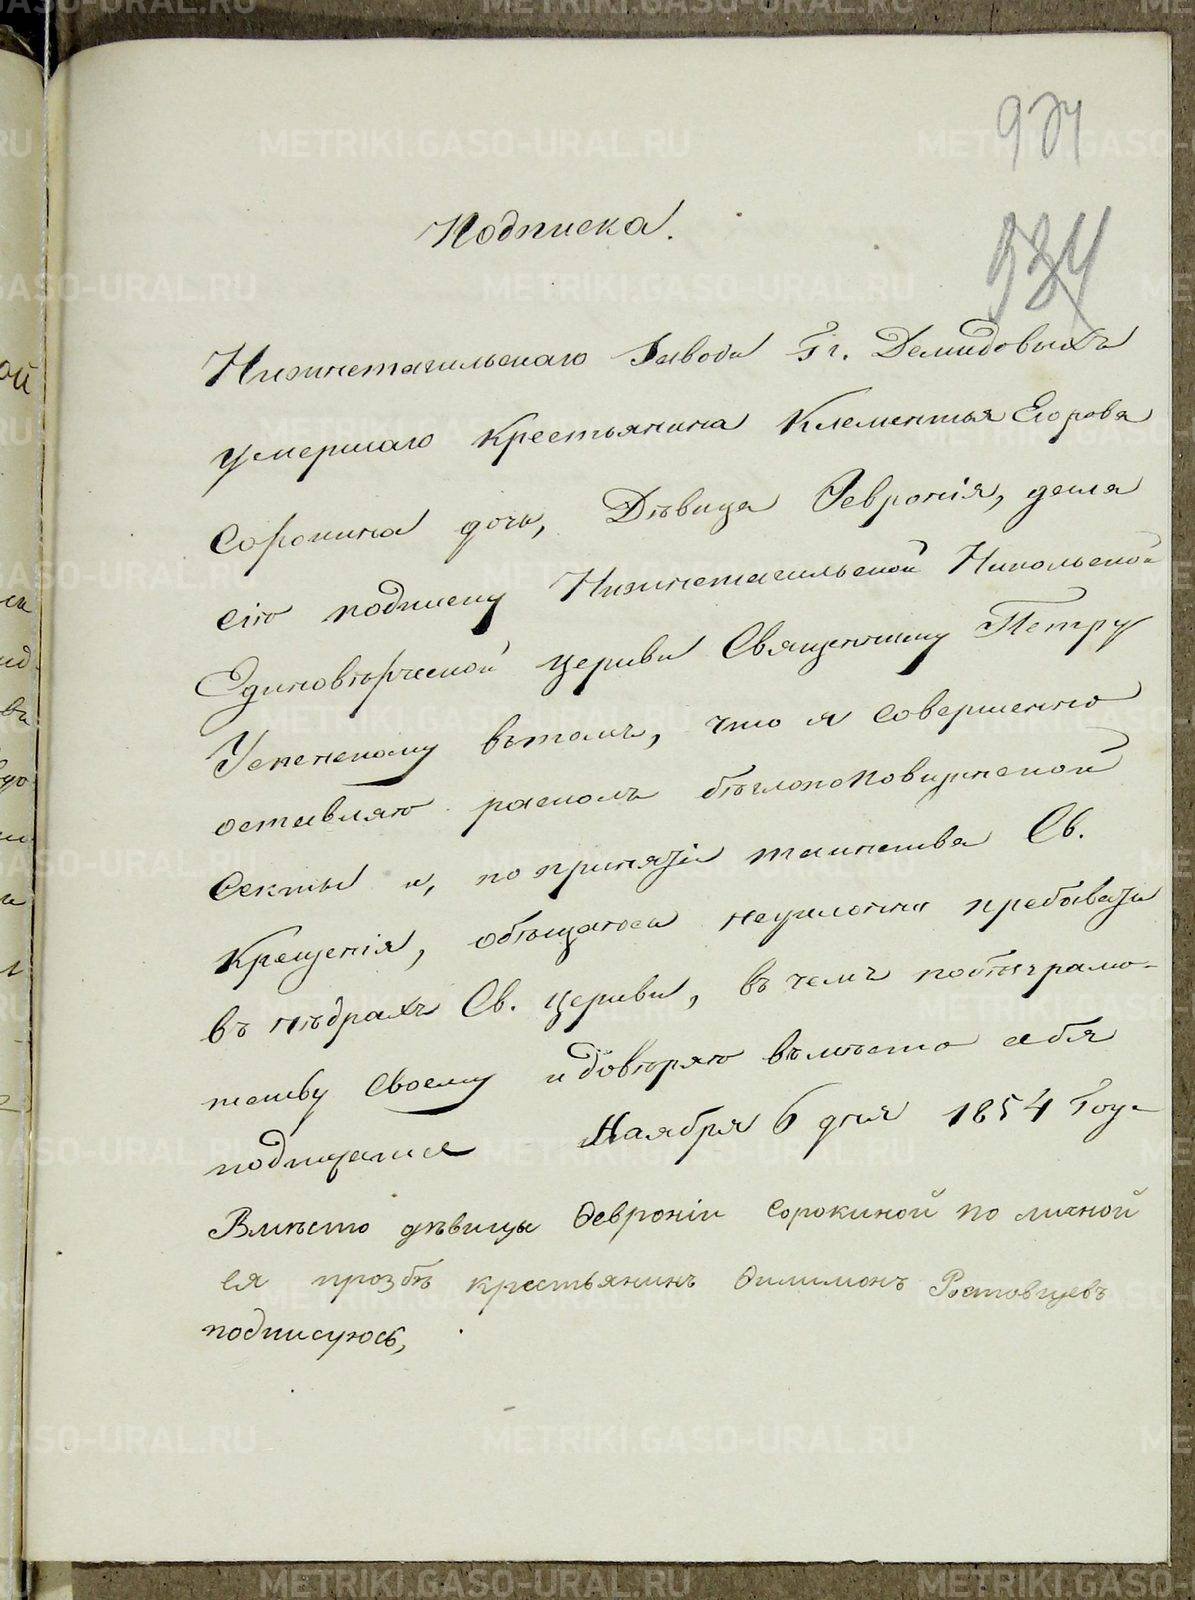 974
934
Подписка.
Нижнетагильскаго Завода Гг. Демидовыхъ
умершаго крестьянина Клементья Егорова
Сорокина дочь, Дѣвица Февронія, дала
сію подписку Нижнетагильской Никольской
Единовѣрческой церкви Священнику Петру
Успенскому въ томъ, что я совершенно
оставляю расколъ бѣглопоповщинской
секты и, по принятіи таинства Св.
Крещенія, обѣщаюсь неуклонно пребывать
въ нѣдрахъ Св. церкви, въ чемъ по безграмо-
тству своему и довѣряю вмѣсто себя
подписатся Ноября 6 дня 1854 Года
Вмѣсто дѣвицы Ѳевроніи Сорокиной по личной
ея прозбѣ крестьянинъ Филимонъ Ростовцевъ
подписуюсь,
METRIKI.GASO-URAL.RU